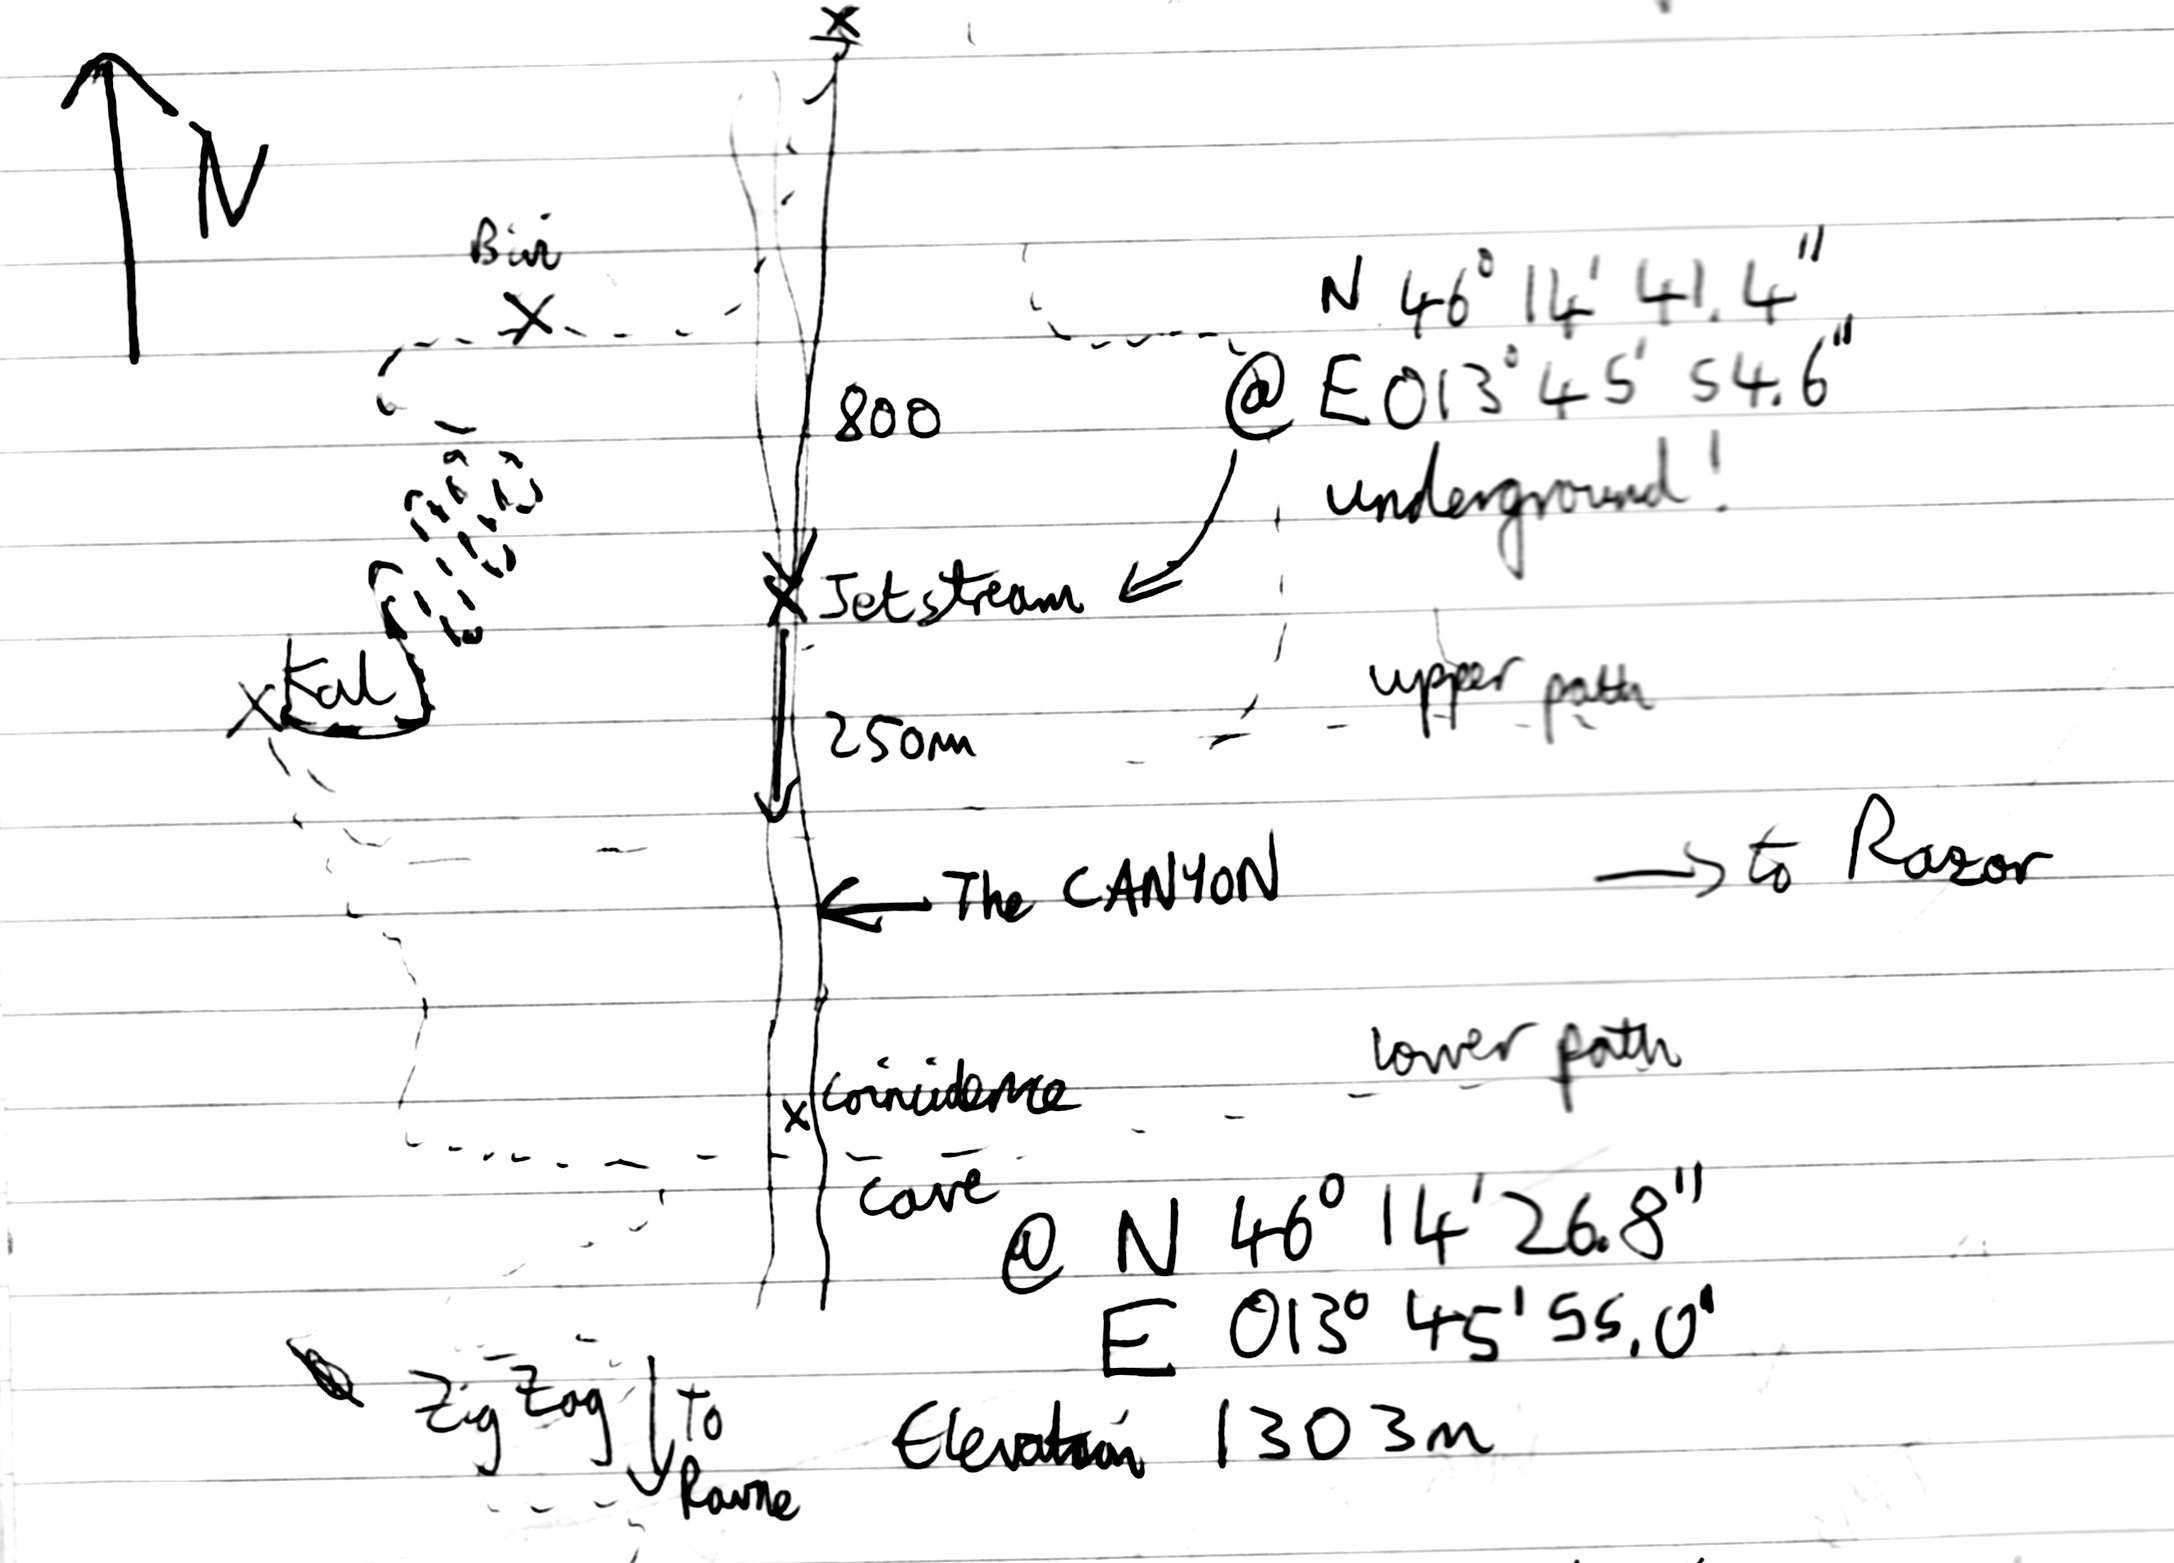 N
Bivi
N 46° 14' 41.4"
@ E 013° 45' 54.6"
underground!
800
Jetstream
Kal
upper path
250m
The CANYON
to Razor
lower path
coincidence
cave
@ N 46° 14' 26.8"
E 013° 45' 55.0"
Elevation 1303m
Zig Zag
To
Ravne